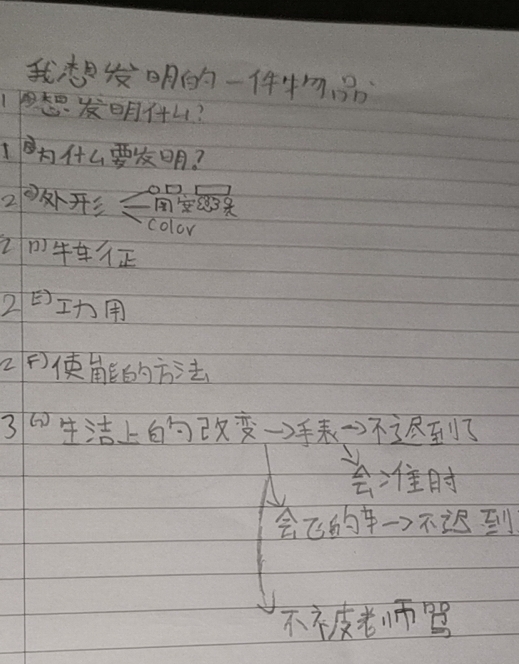 我想发明的一件物品
1 A)想发明什么?
1 B)为什么要发明?
2 C)外形
color
2 D)特征
2 E)功用
2 F)使用的方法
3 G)生活上的改变→手表→不迟到了
会准时
会飞的车→不迟到
不被老师骂